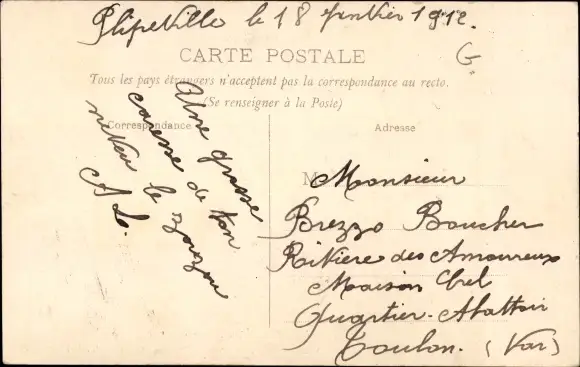 Plipeville le 18 Janvier 1912.
G
CARTE POSTALE
Tous les pays étrangers n'acceptent pas la correspondance au recto.
(Se renseigner à la Poste)
Correspondance
Adresse
Une grosse
caresse de ton
neveu le zouzou
A L.
M
Monsieur
Brezzo Boucher
Rivière des Amoureux
Maison Orel
Quartier. Abattoir
Toulon. (Var)